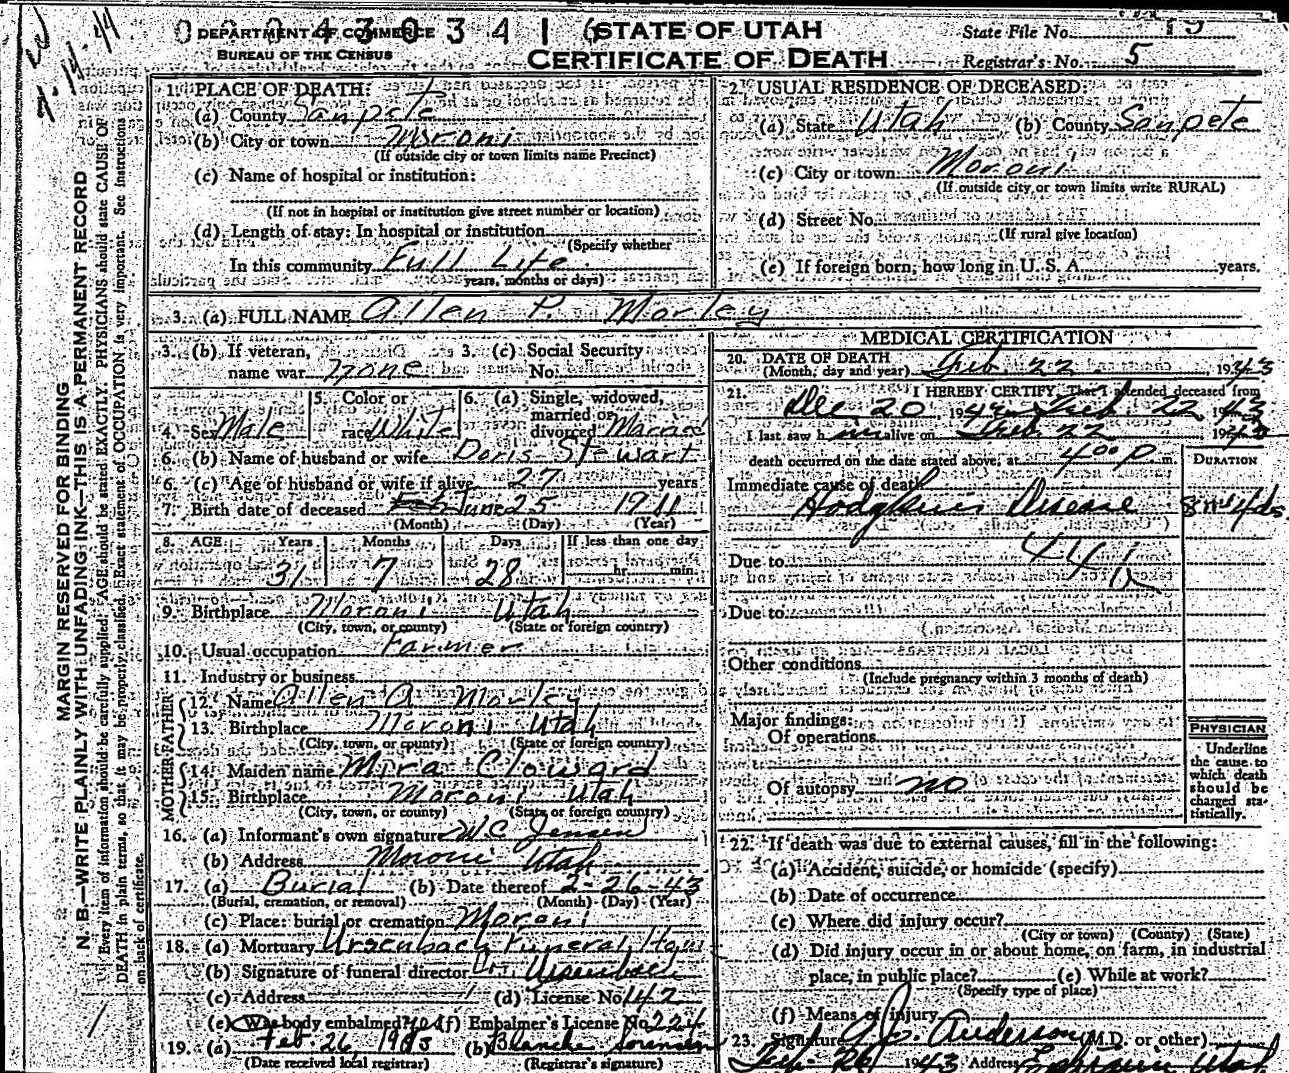 DEPARTMENT OF COMMERCE
BUREAU OF THE CENSUS
STATE OF UTAH
CERTIFICATE OF DEATH
State File No.
Registrar's No. 5
MARGIN RESERVED FOR BINDING
N. B.—WRITE PLAINLY WITH UNFADING INK—THIS IS A PERMANENT RECORD
Every item of information should be carefully supplied. AGE should be stated EXACTLY. PHYSICIANS should state CAUSE OF
DEATH in plain terms, so that it may be properly classified. Exact statement of OCCUPATION is very important. See instructions
on back of certificate.
1. PLACE OF DEATH:
(a) County Sanpete
(b) City or town Moroni
(If outside city or town limits name Precinct)
(c) Name of hospital or institution:
(If not in hospital or institution give street number or location)
(d) Length of stay: In hospital or institution
(Specify whether
In this community Full Life
years, months or days)
2. USUAL RESIDENCE OF DECEASED:
(a) State Utah (b) County Sanpete
(c) City or town Moroni
(If outside city or town limits write RURAL)
(d) Street No.
(If rural give location)
(e) If foreign born, how long in U. S. A. years.
3. (a) FULL NAME Allen P. Morley
3. (b) If veteran, name war None
3. (c) Social Security No.
4. Sex Male
5. Color or race White
6. (a) Single, widowed, married or divorced Married
6. (b) Name of husband or wife Doris Stewart
6. (c) Age of husband or wife if alive 27 years
7. Birth date of deceased June 25 1911
(Month) (Day) (Year)
8. AGE Years Months Days If less than one day
31 7 28 hr. min.
9. Birthplace Moroni Utah
(City, town, or county) (State or foreign country)
10. Usual occupation Farmer
11. Industry or business
FATHER
12. Name Allen A. Morley
13. Birthplace Moroni Utah
(City, town, or county) (State or foreign country)
MOTHER
14. Maiden name Mira Cloward
15. Birthplace Moroni Utah
(City, town, or county) (State or foreign country)
16. (a) Informant's own signature W.C. Jensen
(b) Address Moroni Utah
17. (a) Burial (b) Date thereof 2-26-43
(Burial, cremation, or removal) (Month) (Day) (Year)
(c) Place: burial or cremation Moroni
18. (a) Mortuary Ursenbach Funeral Home
(b) Signature of funeral director Ursenbach
(c) Address (d) License No. 142
(e) Was body embalmed Yes (f) Embalmer's License No. 224
19. (a) Feb. 26, 1943 (b) Blanche Sorensen
(Date received local registrar) (Registrar's signature)
MEDICAL CERTIFICATION
20. DATE OF DEATH
(Month, day and year) Feb 22, 1943
21. I HEREBY CERTIFY, That I attended deceased from
Dec 20 1942 Feb. 22 1943
I last saw him alive on Feb. 22 1943
death occurred on the date stated above, at 4 00 P m.
DURATION
Immediate cause of death
Hodgkins Disease
Due to
Due to
Other conditions
(Include pregnancy within 3 months of death)
Major findings:
Of operations
Of autopsy no
PHYSICIAN
Underline
the cause to
which death
should be
charged sta-
tistically.
22. If death was due to external causes, fill in the following:
(a) Accident, suicide, or homicide (specify)
(b) Date of occurrence
(c) Where did injury occur?
(City or town) (County) (State)
(d) Did injury occur in or about home, on farm, in industrial
place, in public place? (e) While at work?
(Specify type of place)
(f) Means of injury
23. Signature Anderson (M.D. or other)
Feb. 26 1943 Address Ephraim Utah